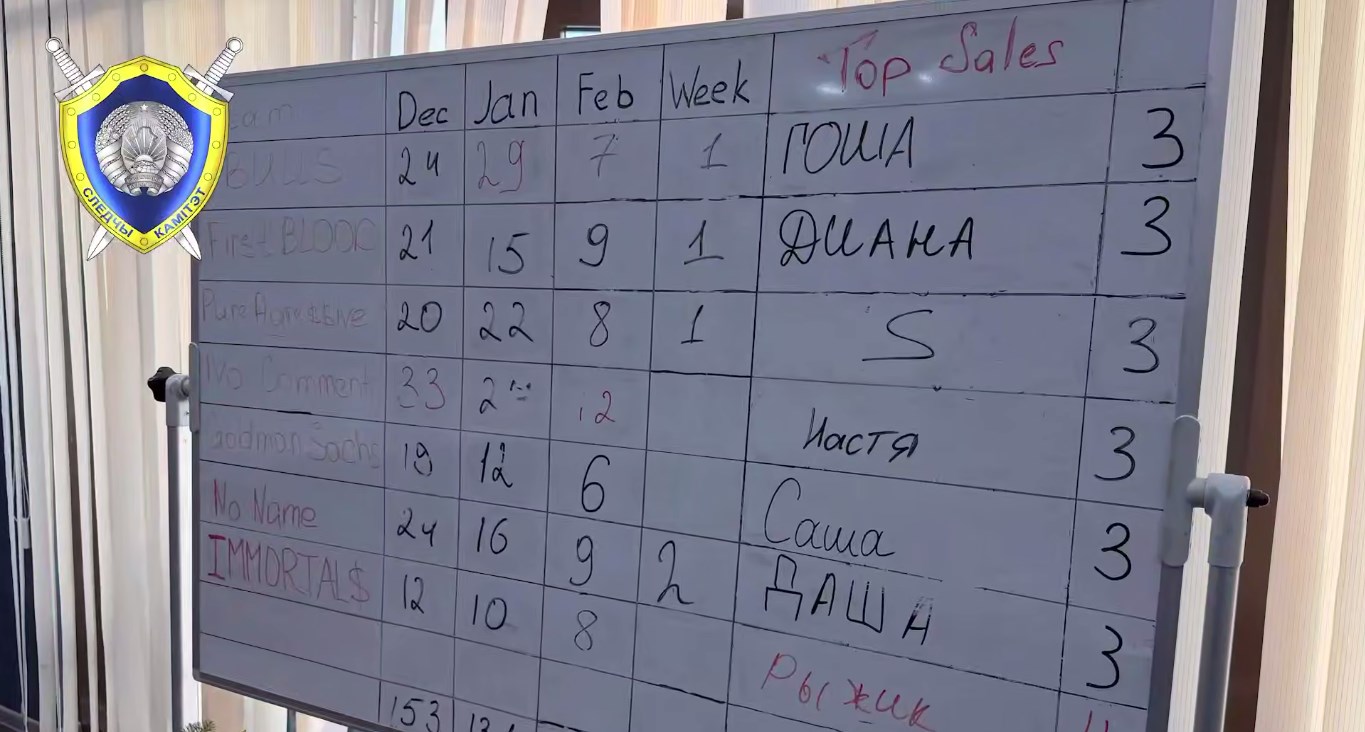 СЛЕДЧЫ КАМІТЭТ
Dec Jan Feb Week Top Sales
BULLS 24 29 7 1 ГОША 3
First BLOOD 21 15 9 1 ДИАНА 3
Pure 20 22 8 1 S 3
No Comment 33 12 Настя 3
19 12 6 Саша 3
No Name 24 16 9 2 ДАША 3
IMMORTAL$ 12 10 8 Рыжик
153